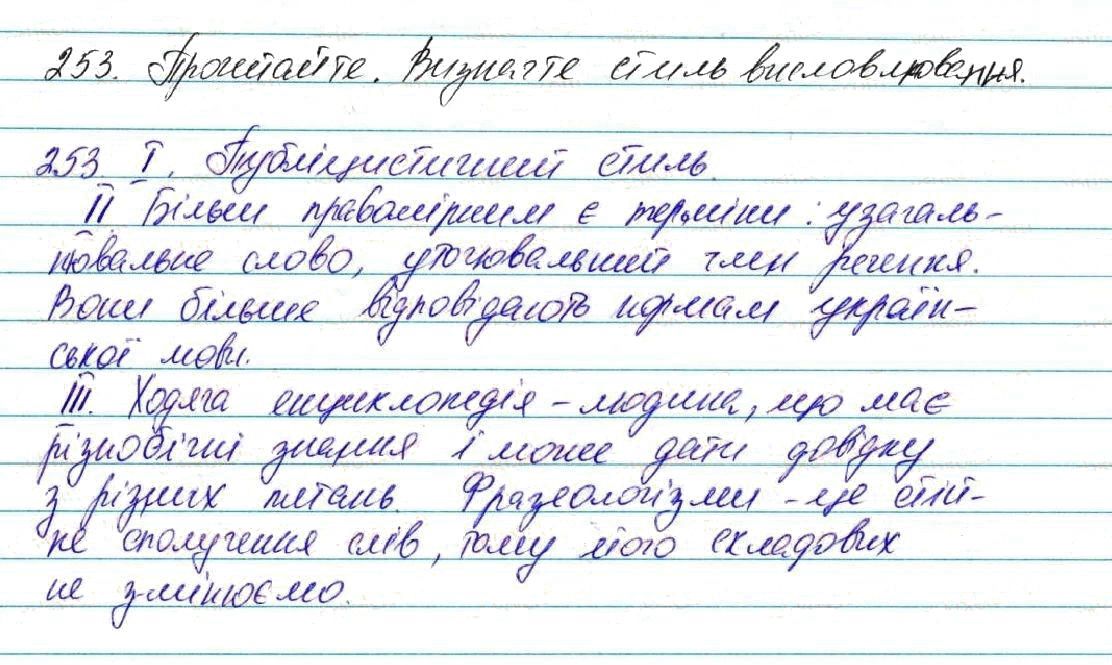 253. Прочитайте. Визначте стиль висловлювання.
253. I. Публіцистичний стиль.
II Більш правомірним є терміни: узагаль-
нювальне слово, уточнювальний член речення.
Вони більше відповідають нормам україн-
ської мови.
III. Ходяча енциклопедія - людина, що має
різнобічні знання і може дати довідку
з різних питань. Фразеологізми - це стій-
не сполучення слів, тому його складових
не змінюємо.